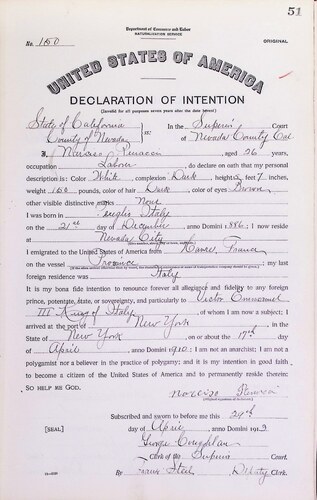 51
Department of Commerce and Labor
NATURALIZATION SERVICE
No. 150
ORIGINAL
UNITED STATES OF AMERICA
DECLARATION OF INTENTION
(Invalid for all purposes seven years after the date hereof)
State of California
County of Nevada
ss:
In the Superior Court
of Nevada County Cal
I, aged 26 years,
occupation Laborer, do declare on oath that my personal
description is: Color White, complexion Dark, height 5 feet 7 inches,
weight 160 pounds, color of hair Dark, color of eyes Brown
other visible distinctive marks None
I was born in Italy
on the 21st day of December, anno Domini 1886; I now reside
at Nevada City
I emigrated to the United States of America from Havre, France
on the vessel; my last
foreign residence was Italy
It is my bona fide intention to renounce forever all allegiance and fidelity to any foreign
prince, potentate, state, or sovereignty, and particularly to Victor Emmanuel
III King of Italy, of whom I am now a subject; I
arrived at the port of New York, in the
State of New York, on or about the 17th day
of April, anno Domini 1910; I am not an anarchist; I am not a
polygamist nor a believer in the practice of polygamy; and it is my intention in good faith
to become a citizen of the United States of America and to permanently reside therein:
SO HELP ME GOD.
Subscribed and sworn to before me this
[SEAL] day of April, anno Domini 191
Clerk of the Superior Court.
By Deputy Clerk.